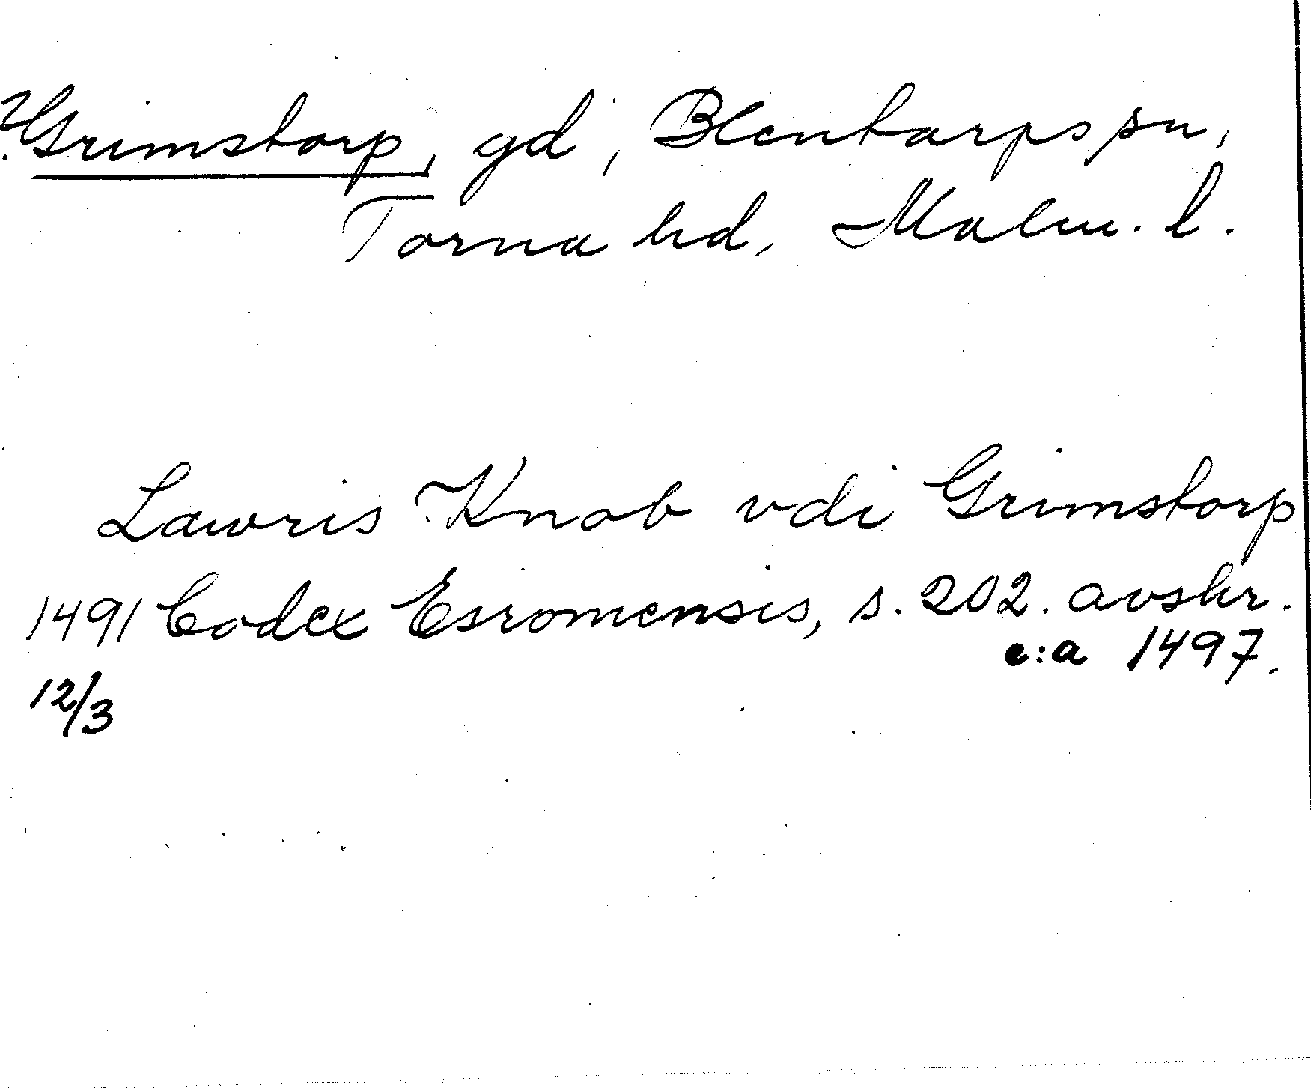 ?Grimstorp, gd, Blentarps sn,
Torna hd, Malm. l.
Lawris Knob vdi Grimstorp
1491 Codex Esromensis, s. 202. avskr.
12/3 c:a 1497.